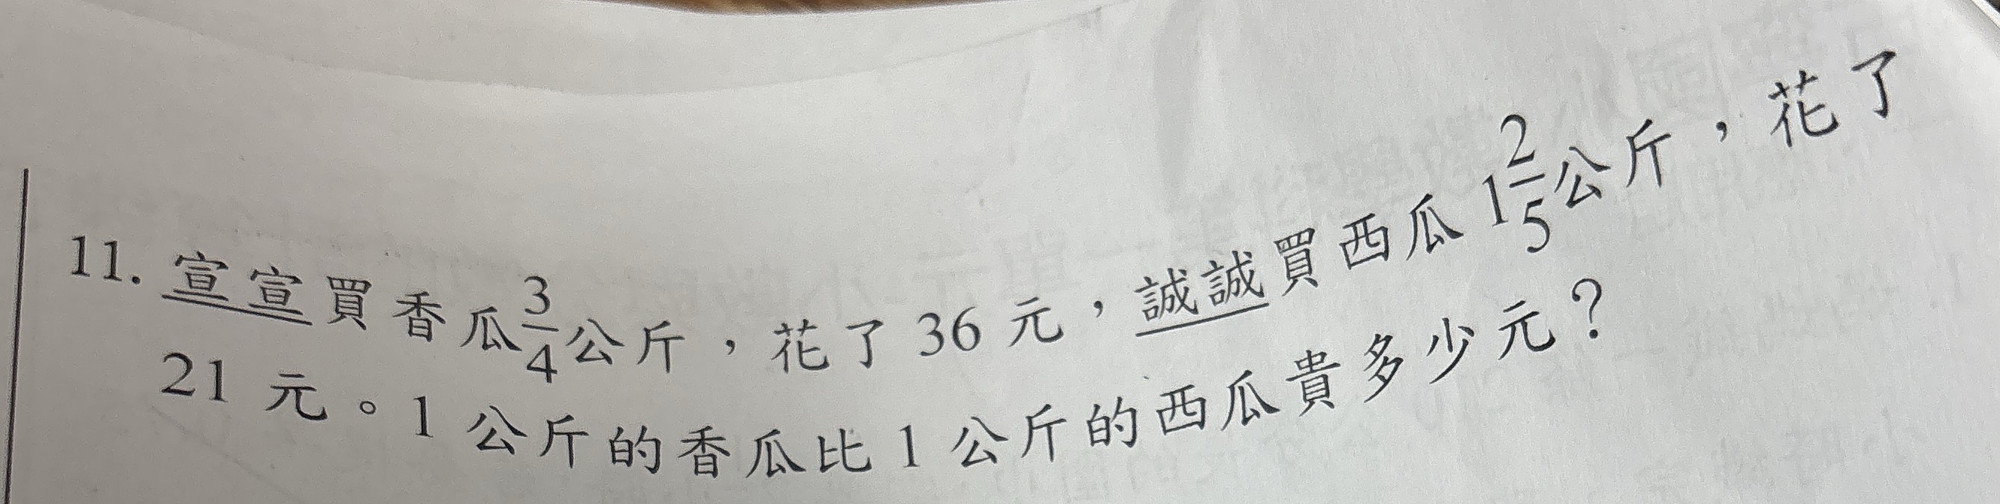 11. 宣宣買香瓜3/4公斤，花了 36 元，誠誠買西瓜 1 2/5公斤，花了
21 元。1 公斤的香瓜比 1 公斤的西瓜貴多少元？